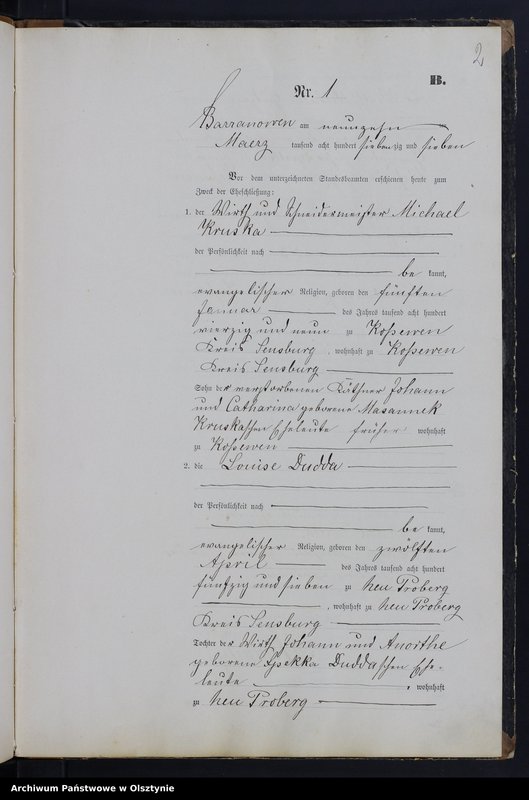 2
B.
Nr. 1
Barranowen am neunzehn
Maerz tausend acht hundert siebenzig und sieben
Vor dem unterzeichneten Standesbeamten erschienen heute zum
Zweck der Eheschließung:
1. der Wirth und Schneidermeister Michael
Kruska
der Persönlichkeit nach
be kannt,
evangelischer Religion, geboren den fünften
Januar des Jahres tausend acht hundert
vierzig und neun zu Koßewen
Kreis Sensburg, wohnhaft zu Koßewen
Kreis Sensburg
Sohn der verstorbenen Käthner Johann
und Catharina geborene Masannek
Kruskaschen Eheleute früher wohnhaft
zu Koßewen
2. die Louise Dudda
der Persönlichkeit nach
be kannt,
evangelischer Religion, geboren den zwölften
April des Jahres tausend acht hundert
fünfzig und sieben zu Neu Proberg
, wohnhaft zu Neu Proberg
Kreis Sensburg
Tochter der Wirth Johann und Anorthe
geborene Duddaschen Ehe-
leute, wohnhaft
zu Neu Proberg
Archiwum Państwowe w Olsztynie